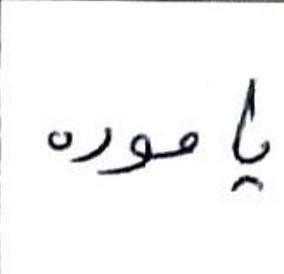 يا موده